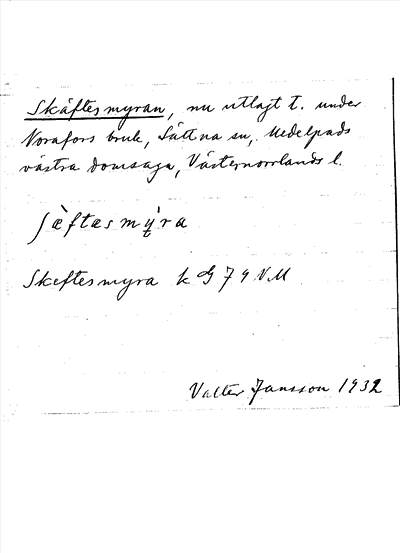 Skäftesmyran, nu utlagt t. under
Norafors bruk, Sättna sn, Medelpads
västra domsaga, Västernorrlands l.
ʃæ̀ftæsmỳ̨ra
Skeftesmyra k G 79 V. M
Valter Jansson 1932